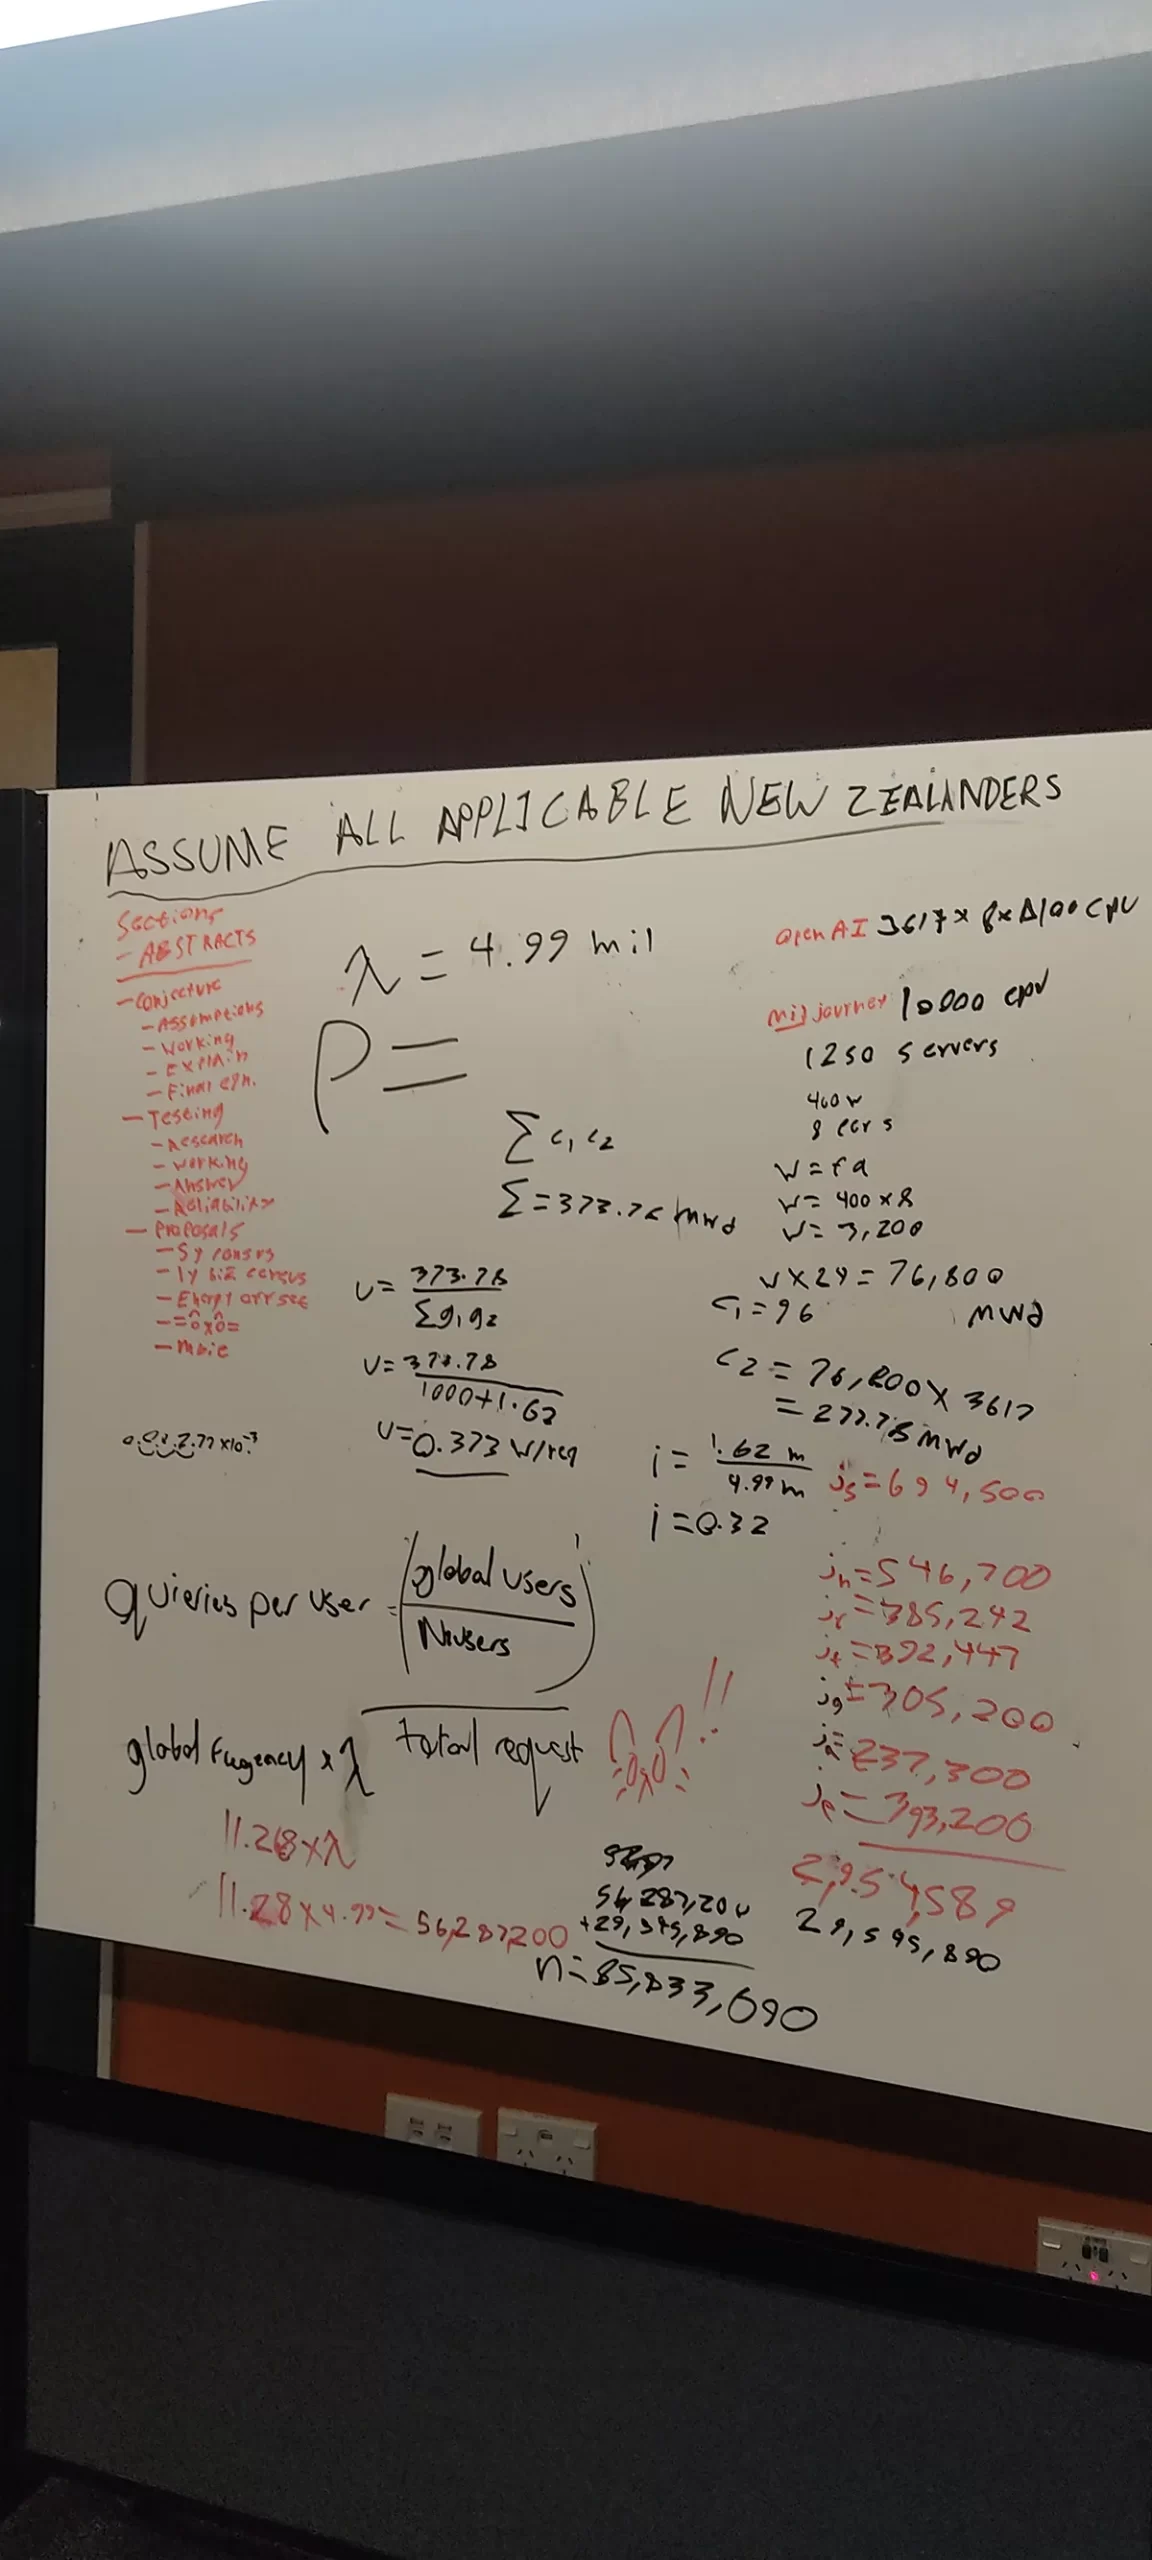 ASSUME ALL APPLICABLE NEW ZEALANDERS
Sections
- ABSTRACTS
- Conjecture
- Assumptions
- Working
- Explain
- Final eqn.
- Testing
- Research
- Working
- Answer
- Reliability
- Proposals
- 5y census
- 1y biz census
- =ôxô=
- more
λ = 4.99 mil
P =
Σ c₁ c₂
Σ = 373.76 MWd
U = 373.78 / Σg₁g₂
U = 373.78 / 1000+1.62
U = 0.373 W/req
2.77 x10⁻³
OpenAI 3617 x 8x A100 CPU
Midjourney 10000 cpu
1250 servers
400 w
8 ecrs
W = fa
W = 400 x 8
W = 3,200
W x 24 = 76,800
C₁ = 96 MWd
C₂ = 76,800 x 3617
= 277.78 MWd
i = 1.62 m / 4.99 m
i = 0.32
js = 694,500
jh = 546,700
jr = 385,242
jt = 392,447
jg = 305,200
= 237,300
je = 393,200
2,954,589
29,545,890
Quieries per user = (global users / NZ users)
total request
global fuqency x λ
!!
0x0
11.268 x λ
11.28 x 4.99 = 56,287,200
56,287,200
+29,545,890
n = 85,833,090